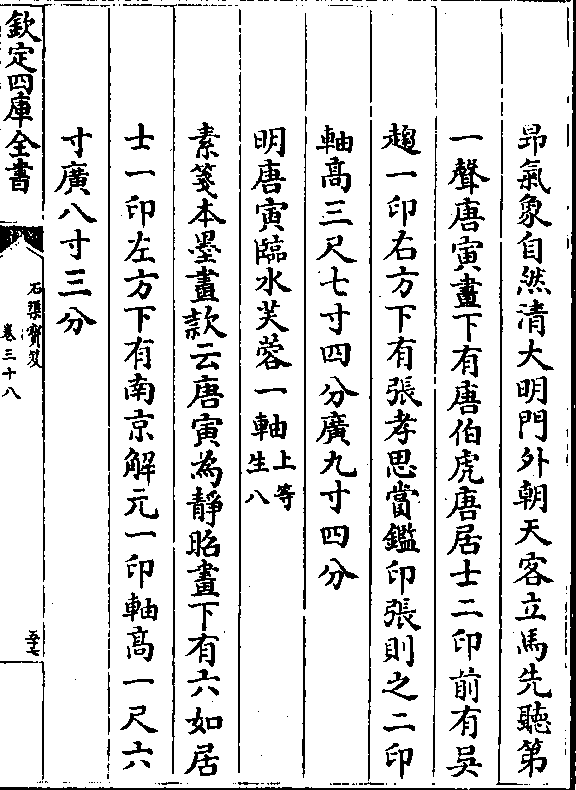 昻氣象自然清大明門外朝天客立馬先聽第
一聲唐寅畫下有唐伯虎唐居士二印前有吳
趨一印右方下有張孝思當鑑印張則之二印
軸髙三尺七寸四分廣九寸四分
明唐寅臨水芙蓉一軸上等
生八
素箋本墨畫款云唐寅為靜昭畫下有六如居
士一印左方下有南京解元一印軸髙一尺六
寸廣八寸三分
欽定四庫全書
石渠寳笈
卷三十八